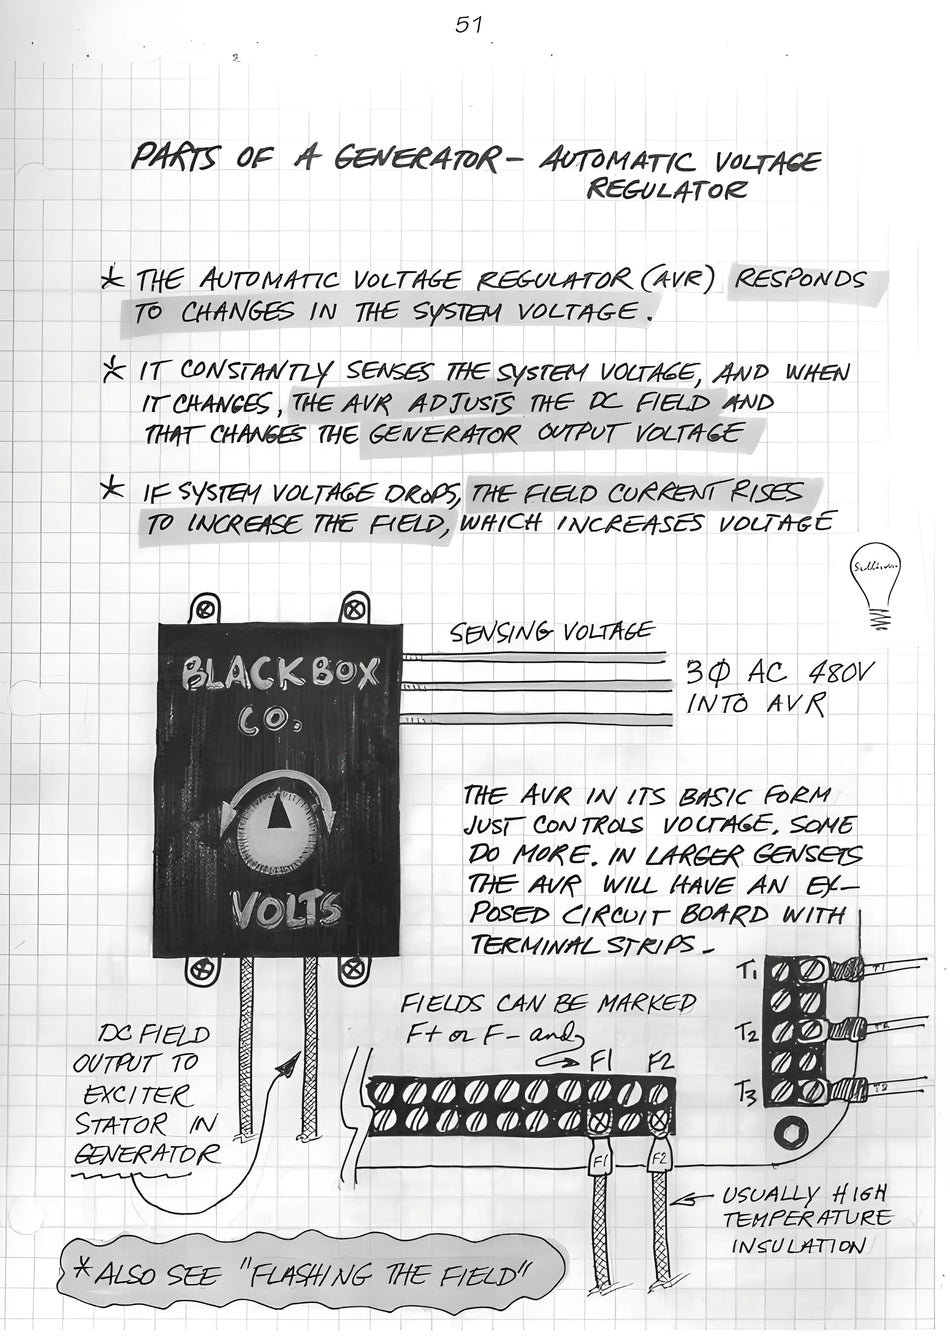 51
PARTS OF A GENERATOR - AUTOMATIC VOLTAGE
REGULATOR
* THE AUTOMATIC VOLTAGE REGULATOR (AVR) RESPONDS
TO CHANGES IN THE SYSTEM VOLTAGE.
* IT CONSTANTLY SENSES THE SYSTEM VOLTAGE, AND WHEN
IT CHANGES, THE AVR ADJUSTS THE DC FIELD AND
THAT CHANGES THE GENERATOR OUTPUT VOLTAGE
* IF SYSTEM VOLTAGE DROPS, THE FIELD CURRENT RISES
TO INCREASE THE FIELD, WHICH INCREASES VOLTAGE
Sullivan
SENSING VOLTAGE
BLACK BOX
CO.
3Φ AC 480V
INTO AVR
VOLTS
THE AVR IN ITS BASIC FORM
JUST CONTROLS VOLTAGE. SOME
DO MORE. IN LARGER GENSETS
THE AVR WILL HAVE AN EX-
POSED CIRCUIT BOARD WITH
TERMINAL STRIPS -
T1 T1
T2 T2
T3 T3
FIELDS CAN BE MARKED
F+ or F- and
F1 F2
F1 F2
DC FIELD
OUTPUT TO
EXCITER
STATOR IN
GENERATOR
USUALLY HIGH
TEMPERATURE
INSULATION
* ALSO SEE "FLASHING THE FIELD"